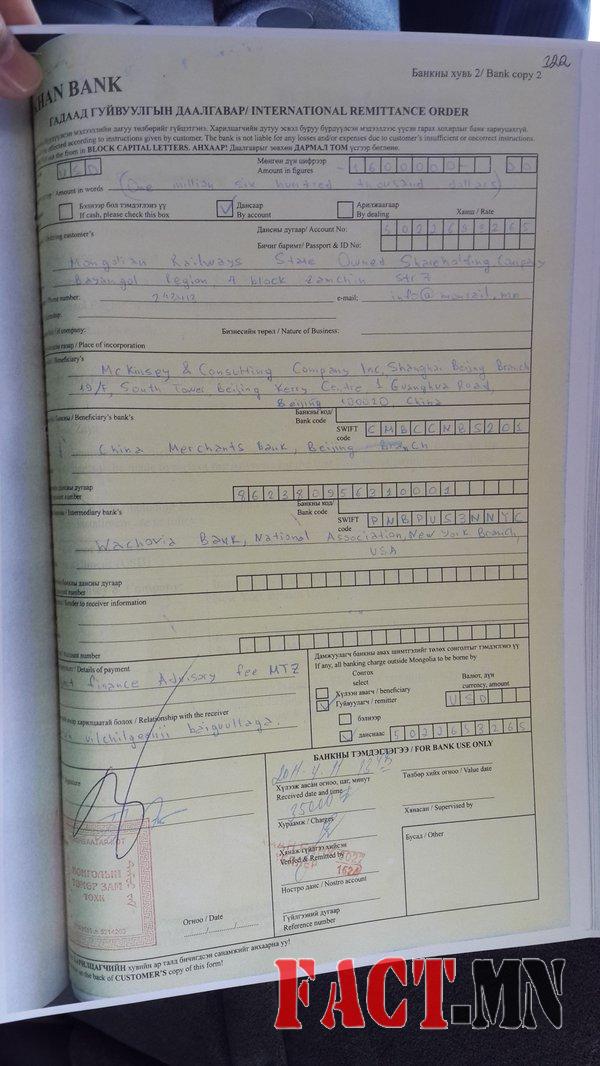 Банкны хувь 2/ Bank copy 2
322
KHAN BANK
ГАДААД ГУЙВУУЛГЫН ДААЛГАВАР/ INTERNATIONAL REMITTANCE ORDER
мэдээллийн дагуу төлбөрийг гүйцэтгэнэ. Харилцагчийн дутуу эсвэл буруу бүрдүүлсэн мэдээллээс үүсэн гарах хохирлыг банк хариуцахгүй.
effected according to instructions given by customer. The bank is not liable for any losses and/or expenses due to customer's insufficient or oncorrect instructions.
out the from in BLOCK CAPITAL LETTERS. АНХААР! Даалгаврыг зөвхөн ДАРМАЛ ТОМ үсгээр бөглөнө.
USD
Мөнгөн дүн цифрээр
Amount in figures
-1600000-00
/ Amount in words
(One million six hundred thousand dollars)
Бэлнээр бол тэмдэглэнэ үү
If cash, please check this box
Дансаар
By account
Арилжаагаар
By dealing
Ханш / Rate
customer's
Дансны дугаар/ Account No:
5022653265
Бичиг баримт/ Passport & ID No:
Mongolian Railways State Owned Shareholding Company
Bayangol Region, 4 block Zamchin str 7
number:
e-mail:
info@monrail.mn
of company:
Бизнесийн төрөл / Nature of Business:
/ Place of incorporation
/ Beneficiary's
McKinsey & Consulting Company Inc, Shanghai Beijing Branch
19/F, South Tower Beijing Kerry Centre 1 Guanghua Road,
Beijing 100020 China
/ Beneficiary's bank's
Банкны код/
Bank code
SWIFT
code
CMBCCNBS201
China Merchants bank, Beijing Branch
дансны дугаар
number
862380956310001
/ Intermediary bank's
Банкны код/
Bank code
SWIFT
code
PNBPUS3NNYC
Wachovia Bank, National Association, New York Branch,
USA
банкны дансны дугаар
number
/ Sender to receiver information
number
/ Details of payment
finance Advisory fee MTZ
харилцаатай болох / Relationship with the receiver
uilchilgeenii baiguullaga.
Дамжуулагч банкны авах шимтгэлийг төлөх сонголтыг тэмдэглэнэ үү
If any, all banking charge outside Mongolia to be borne by
Сонгох
select
Валют, дүн
currency, amount
Хүлээн авагч / beneficiary
Гуйвуулагч / remitter
USD
бэлнээр
данснаас
5022653265
БАНКНЫ ТЭМДЭГЛЭГЭЭ / FOR BANK USE ONLY
Хүлээж авсан огноо, цаг, минут
Received date and time
Төлбөр хийх огноо / Value date
35000₮
Хураамж / Charges
Хянасан / Supervised by
Хянаж гүйлгээ хийсэн
Verified & Remitted by
Бусад / Other
Ностро данс / Nostro account
Гүйлгээний дугаар
Reference number
Signature
МОНГОЛЫН
ТӨМӨР ЗАМ
ТӨХК
Огноо / Date
хувийн ар талд бичигдсэн санамжийг анхаарна уу!
at the back of CUSTOMER'S copy of this form!
FACT.MN